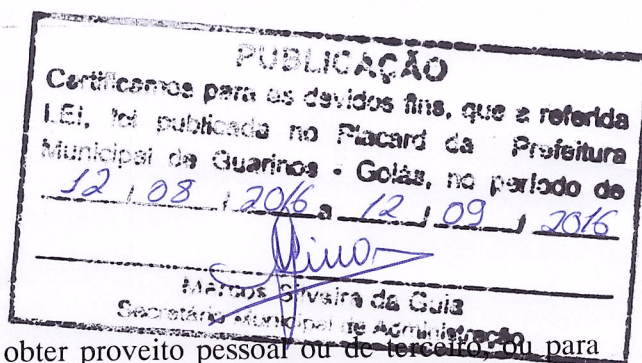 PUBLICAÇÃO
Certificamos para os devidos fins, que a referida
LEI, foi publicada no Placard da Prefeitura
Municipal de Guarinos - Goiás, no período de
12 / 08 / 2016 a 12 / 09 / 2016
Marcos Silveira da Guia
Secretário Municipal de Administração
obter proveito pessoal ou de terceiro, ou para